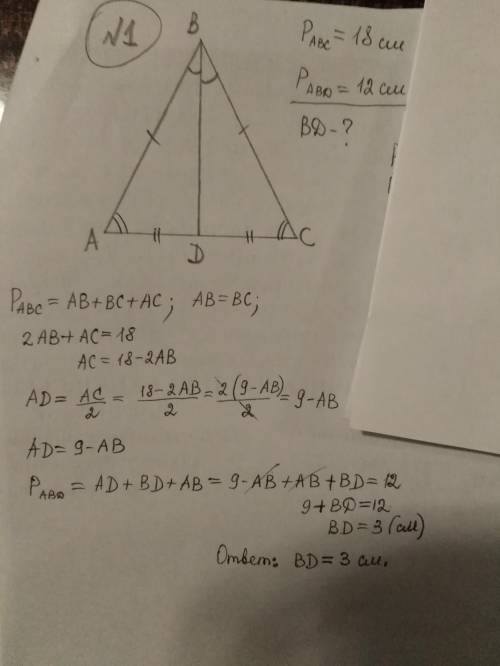 №1
B
A
D
C
P_ABC = 18 см
P_ABD = 12 см
BD - ?
P_ABC = AB + BC + AC ; AB = BC;
2AB + AC = 18
AC = 18 - 2AB
AD = AC/2 = (18 - 2AB)/2 = 2(9 - AB)/2 = 9 - AB
AD = 9 - AB
P_ABD = AD + BD + AB = 9 - AB + AB + BD = 12
9 + BD = 12
BD = 3 (см)
Ответ: BD = 3 см.